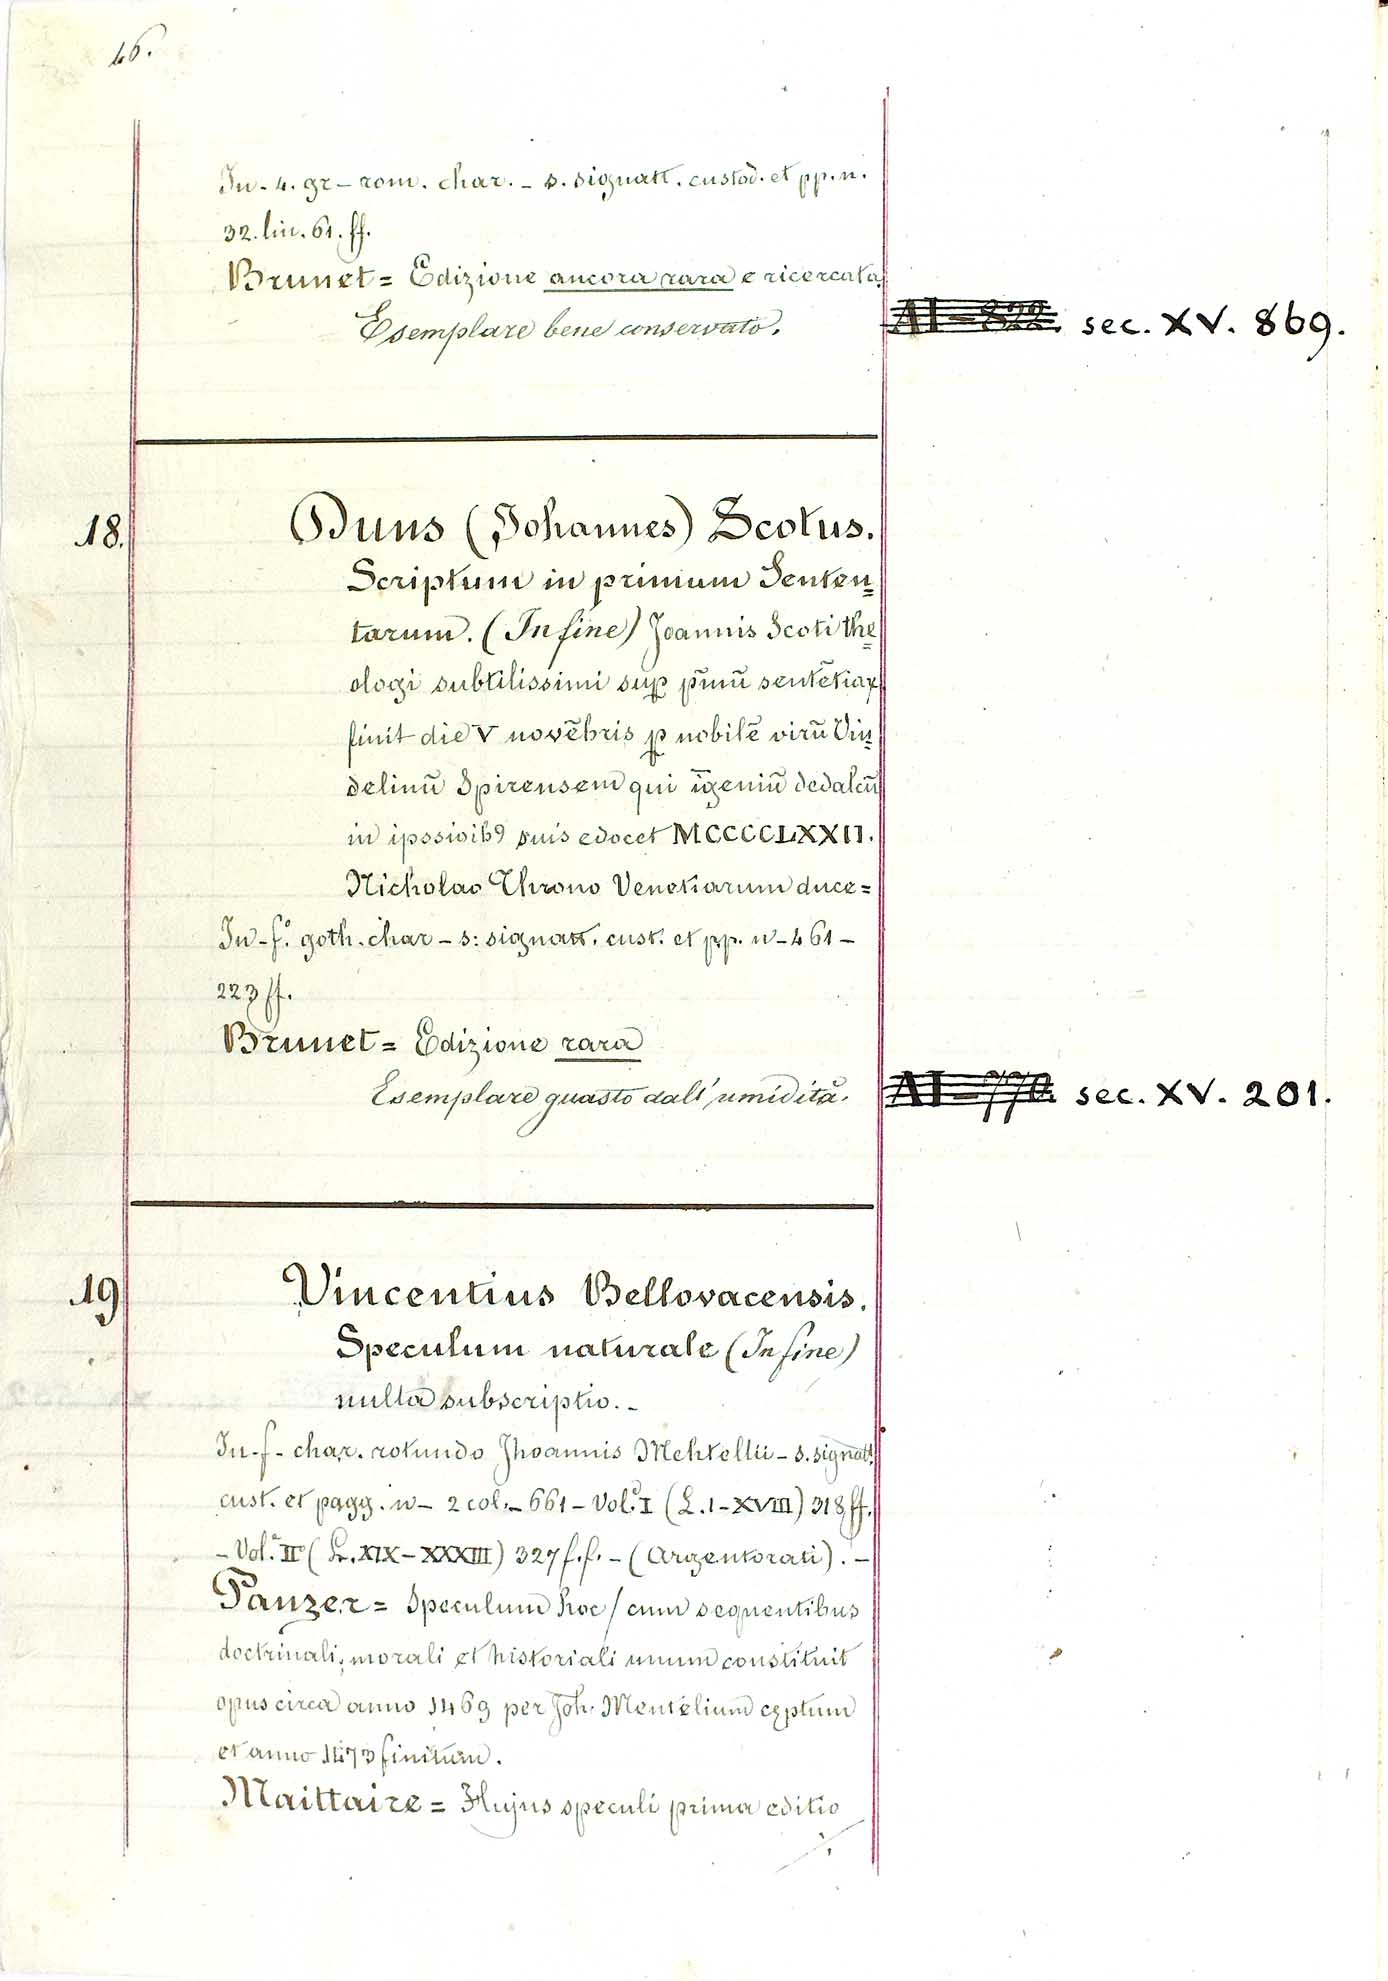 46.
In-4. gr-rom. char. - s. signatt. custod. et pp. n.
32. lin. 61. ff.
Brunet = Edizione ancora rara e ricercata.
Esemplare bene conservato.
AI-822. sec. XV. 869.
18.
Duns (Johannes) Scotus.
Scriptum in primum Senten=
tarum. (In fine) Joannis Scoti the=
ologi subtilissimi sup p̄mū sentētiaꝝ
finit die V novēbris ꝑ nobilē virū Vin=
delinū Spirensem qui īgeniū dedaleū
in ipssioibꝰ suis edocet MCCCCLXXII.
Nicholao Throno Venetiarum duce=
In-f.° goth. char - s: signatt. cust. et pp. n-461-
223 ff.
Brunet = Edizione rara
Esemplare guasto dall'umidità.
AI-770. sec. XV. 201.
19
Vincentius Bellovacensis.
Speculum naturale (In fine)
nulla subscriptio. -
In-f- char. rotundo Jhoannis Mehtellii - s. signatt.
cust. et pagg. n- 2 col. - 661 - Vol. I (L. I-XVIII) 318 ff.
- Vol. II (L. XIX-XXXIII) 327 f.f. - (Argentorati). -
Panzer = Speculum hoc / cum sequentibus
doctrinali, morali et historiali unum constituit
opus circa anno 1469 per Joh. Mentelium cęptum
et anno 1473 finitum.
Maittaire = Hujus speculi prima editio
./.